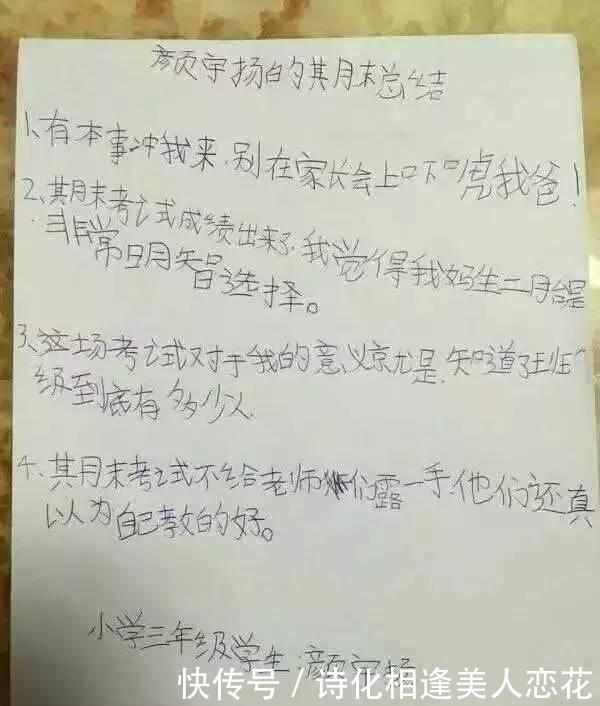 颜宇扬的期月末总结
1、有本事冲我来,别在家长会上吓唬我爸！
2、期末考试成绩出来了,我觉得我妈生二胎是
非常明智选择。
3、这场考试对于我的意义京尤是,知道了班
级到底有多少人
4、期末考试不给老师们露一手,他们还真
以为自己教的好。
小学三年级学生:颜宇扬
快传号/诗化相逢美人恋花